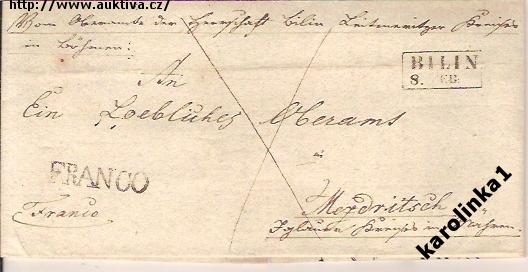 http://www.auktiva.cz/
Vom Oberamte der Herrschaft bilin Leitmeritzer Kreises
in Böhmen:
BILIN
8. FEB.
An
Ein Loebliches Oberamt
in
FRANCO
Franco
Iglauer Kreises in Mähren.
karolinka1